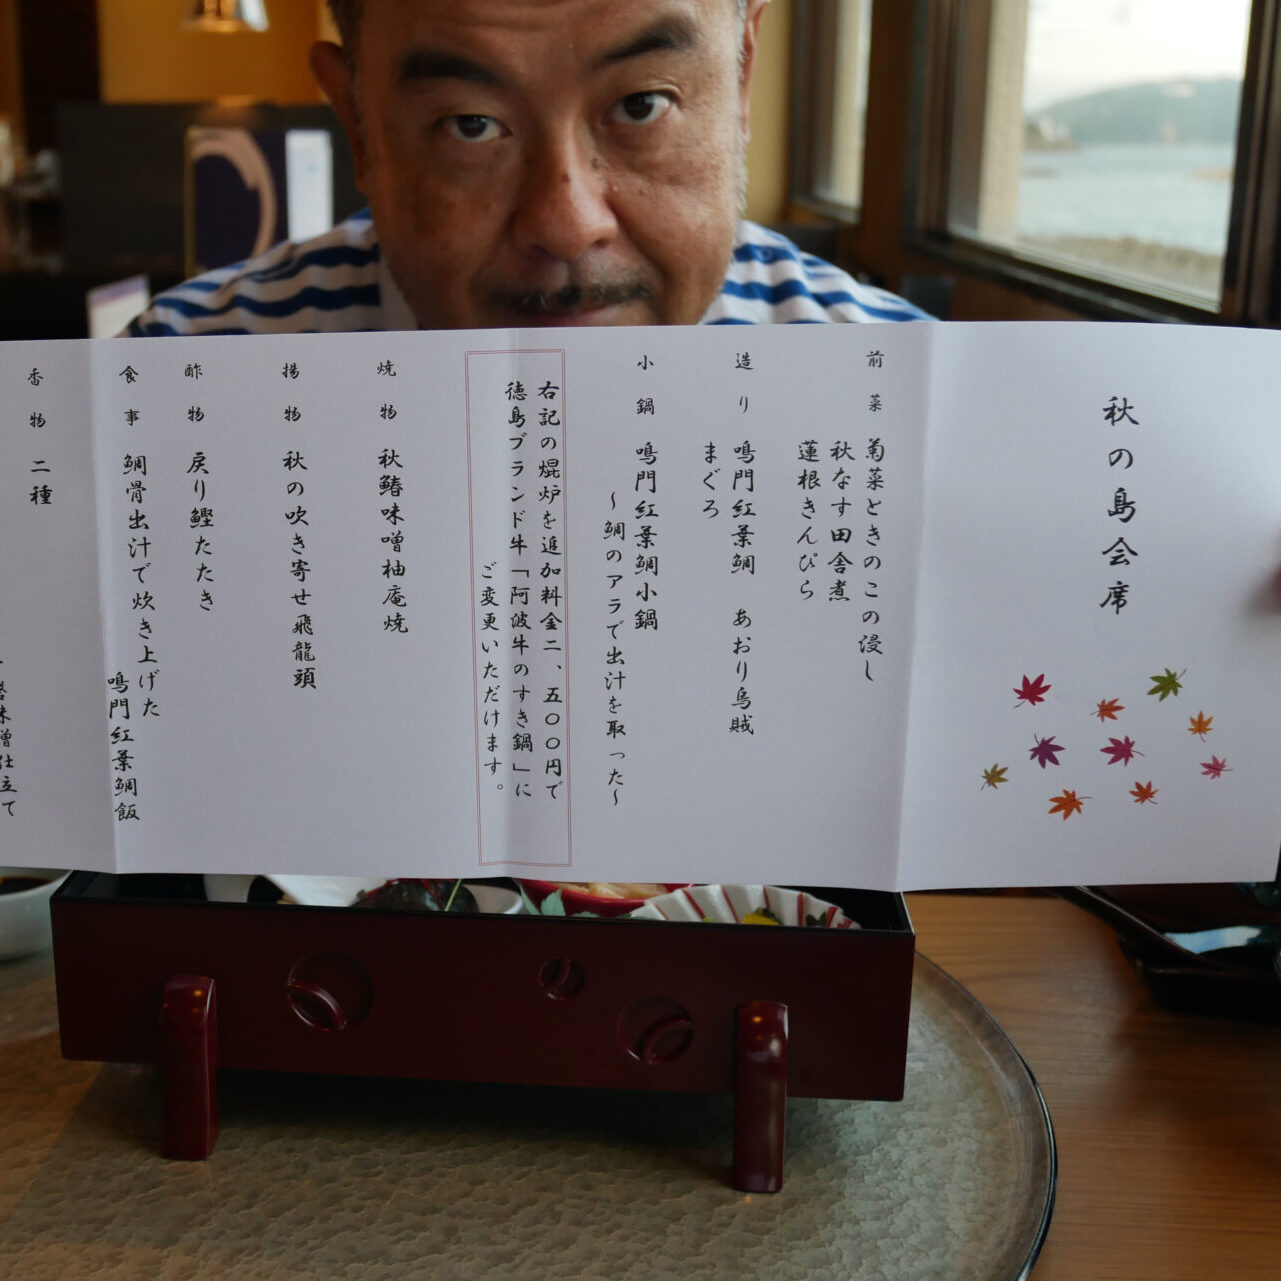 秋の島会席
前菜 菊菜ときのこの浸し
秋なす田舎煮
蓮根きんぴら
造り 鳴門紅葉鯛 あおり烏賊
まぐろ
小鍋 鳴門紅葉鯛小鍋
～鯛のアラで出汁を取った～
右記の焜炉を追加料金二、五〇〇円で
徳島ブランド牛「阿波牛のすき鍋」に
ご変更いただけます。
焼物 秋鰆味噌柚庵焼
揚物 秋の吹き寄せ飛龍頭
酢物 戻り鰹たたき
食事 鯛骨出汁で炊き上げた
鳴門紅葉鯛飯
香物 二種
味噌仕立て